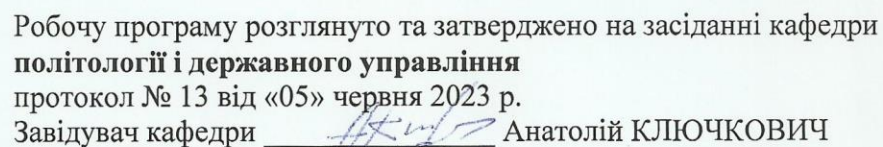 Робочу програму розглянуто та затверджено на засіданні кафедри
політології і державного управління
протокол № 13 від «05» червня 2023 р.
Завідувач кафедри Анатолій КЛЮЧКОВИЧ